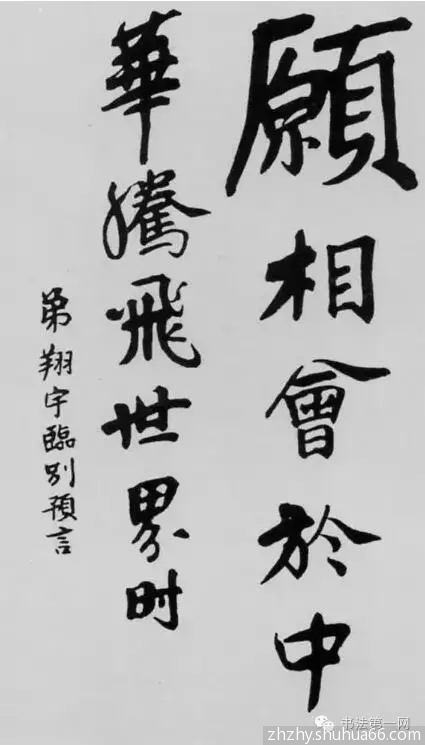 願相會於中
華騰飛世界时
弟翔宇臨别預言
书法第一网
zhzhy.shuhua66.com